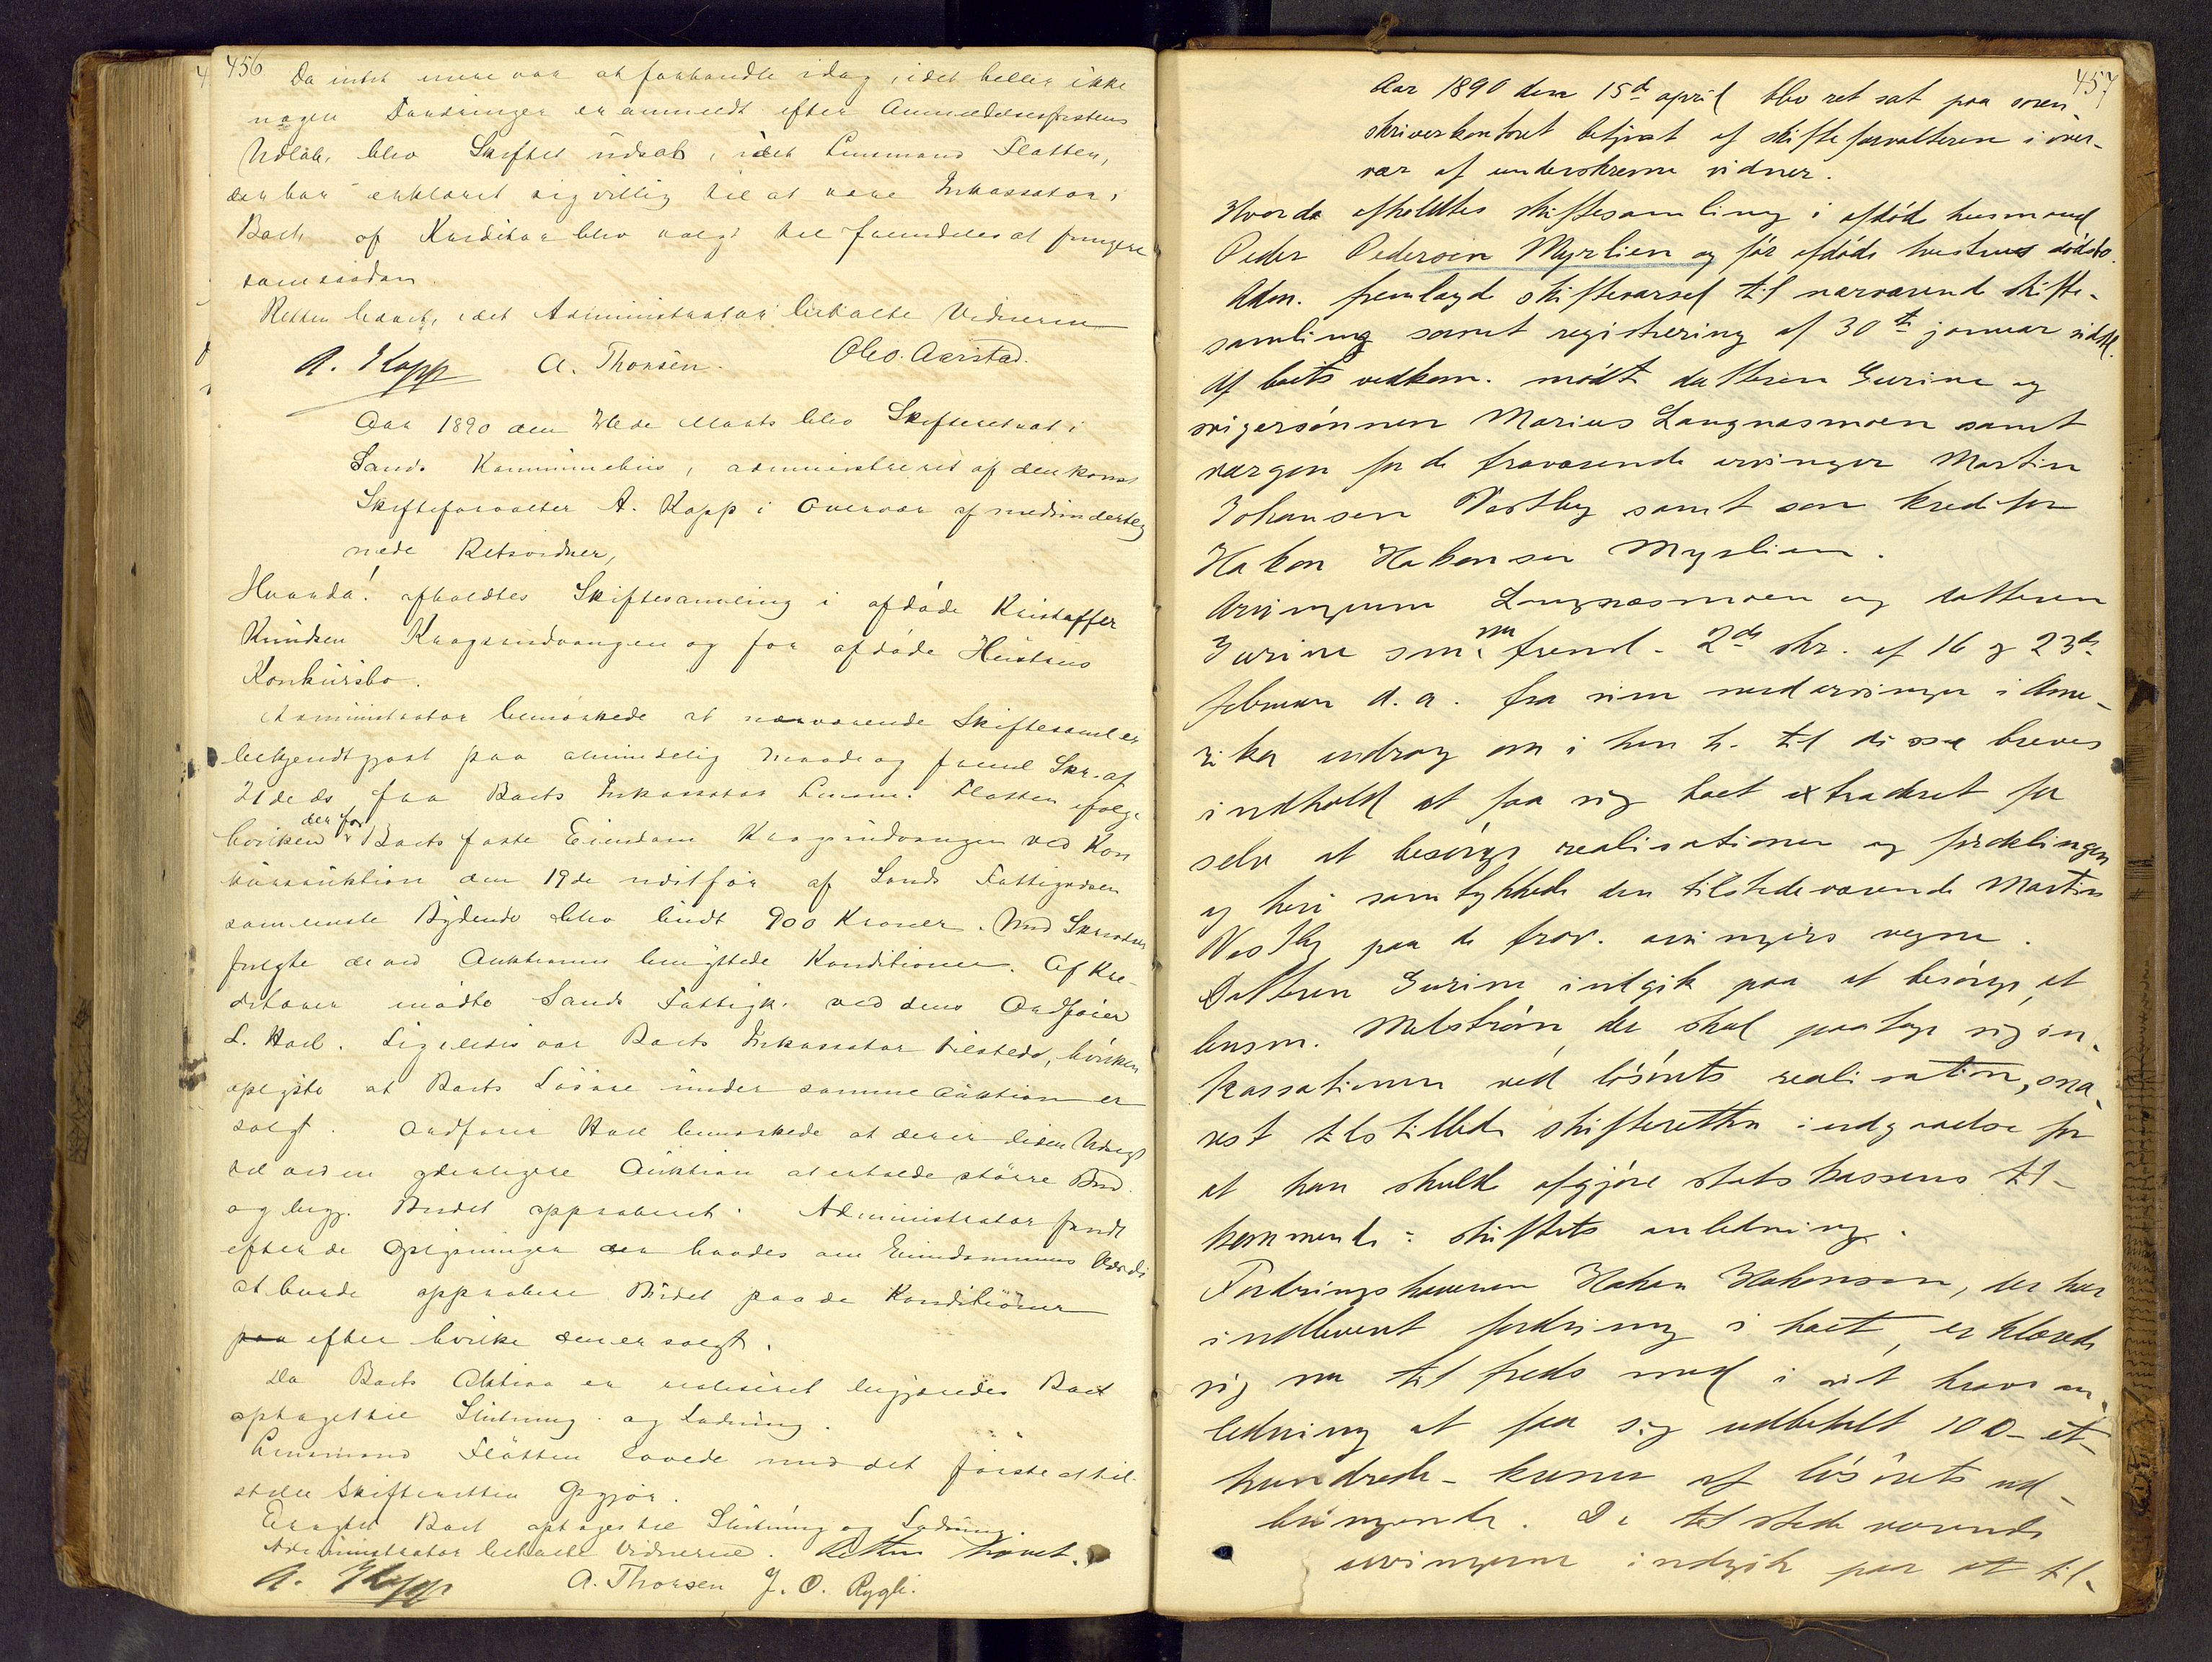 456
Da intet mere var at forhandle idag, idet heller ikke
nogen Fordringer er anmeldt efter Anmeldelsesfristens
Udløb, blev Skiftet udsat, idet Lensmand Flatten,
der har erklæret sig villig til at være Inkassator i
Boet, af Kreditor blev valgt til fremdeles at fungere
som saadan.
Retten hævet, idet Administrator betalte Vidnerne
A. Kopp A. Thorsen. Ole O. Aarstad.
Aar 1890 den Marts blev Skifteret sat i
Sands Kommunehus, administreret af den konst
Skifteforvalter A. Kopp i Overvær af medunderteg
nede Retsvidner,
Hvorda! afholdtes Skiftesamling i afdøde Kristoffer
Knudsen Kragsrudvangen og før afdøde Hustrus
Konkursbo.
Administrator bemærkede at nærværende Skiftesaml er
bekjendtgjort paa almindelig Maade og freml Skr. af
21de ds fra Boets Inkassator Lensm. Flatten ifølge
hvilken der for Boets faste Eiendom Kragsrudvangen ved Kon
kursauktion den 19de nditfør af Sands Fattigvæsen
som eneste Bydende blev budt 900 Kroner. Med Skrivelsen
fulgte de ved Auktionen benyttede Konditioner. Af Kre-
ditorer mødte Sands Fattigk. ved dens Ordfører
L. Hael. Ligeledes var Boets Inkassator tilstede, hvilken
oplyste at Boets Løsøre under samme Auktion er
solgt. Ordfører Hael bemærkede at der er liden Udsigt
til ved en yderligere Auktion at erholde større Bud
og begj. Budet approberet. Administrator fandt
efter de Oplysninger der havdes om Eiendommens Værdi
at burde approbere Budet paa de Konditioner
paa efter hvilke den er solgt.
Da Boets Aktiva er realiseret begjæredes Boet
optaget til Slutning og Lodning.
Lensmand Flatten lovede med det første at til-
stille Skifteretten Opgjør.
Eragtet Boet optages til Slutning og Lodning.
Administrator betalte Vidnerne. Retten hævet.
A. Kopp A. Thorsen J. O. Rygh.
457
Aar 1890 den 15de april blev ret sat paa soren-
skriverkontoret betjent af skifteforvalteren i over-
vær af underskrevne vidner.
Hvorda afholdtes skiftesamling i afdøde husmand
Peder Pedersen Myrlien og før afdøde hustrus dødsbo.
Adm. fremlagde skiftevarsel til nærværende skifte-
samling samt registrering af 30te januar sidstl.
Af boets vedkom. mødte datteren Gurine og
svigersønnen Marius Langnæsmoen samt
vergen for de fraværende arvinger Martin
Johansen Vestby samt som kreditor
Hakon Hakensen Myrlien.
Arvingerne Langnæsmoen og datteren
Gurine som nu freml. 2de skr. af 16 og 23de
februar d. a. fra sine medarvinger i Ame-
rika androg om i hen h. til disse breves
indhold at faa sig boet extraderet for
selv at besørge realisationen og fordelingen
og heri samtykkede den tilstedeværende Martin
Vestby paa de frav. arvingers vegne.
Datteren Gurine indgik paa at besørge, at
lensm. Melstrøm, der skal paatage sig in-
kassationen ved løsørets realisation, sna-
rest tilstillede skifteretten indgaaelse for
at han skulde afgjøre statskassens til-
kommende i skiftets anledning.
Fordringshaveren Hakon Hakonsen, der har
indleveret fordring i boet, erklærede
sig nu tilfreds med i sit kravs an-
ledning at faa sig udbetalt 100 - et-
hundrede - kroner af løsørets ud-
bringende. De tilstedeværende
arvingerne indgik paa at til-